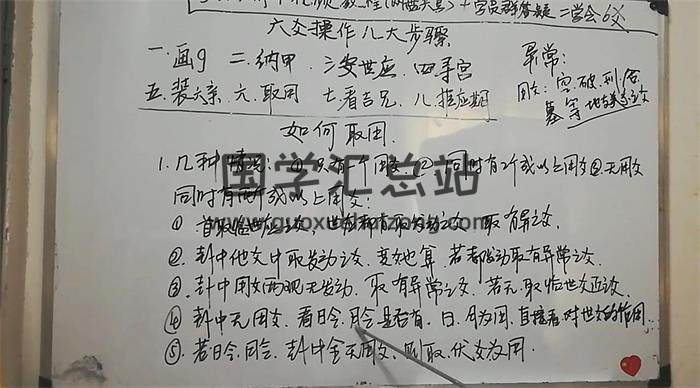 六爻操作八大步骤
一.画9 二.纳甲 三安世应.四寻宫
异常:
用爻:空.破.刑.合
墓等
五.装六亲.六.取用 七.看吉凶.八.推应期
如何取用
国学汇总站
1.几种情况:①只有一个用爻②同时有2个或以上用爻③无用爻
同时有两个或以上用爻:
①首取临世应之爻 取有异之爻.
②卦中他爻中取发动之爻.变爻也算.若都发动取有异常之爻
③.卦中用爻两现无发动.取有异常之爻.若无.取临世爻近之爻
④卦中无用爻.看日令.月令是否有.日.月为用.直接看对世爻的作用
⑤.若日令.月令.卦中全无用爻.则取伏爻为用.